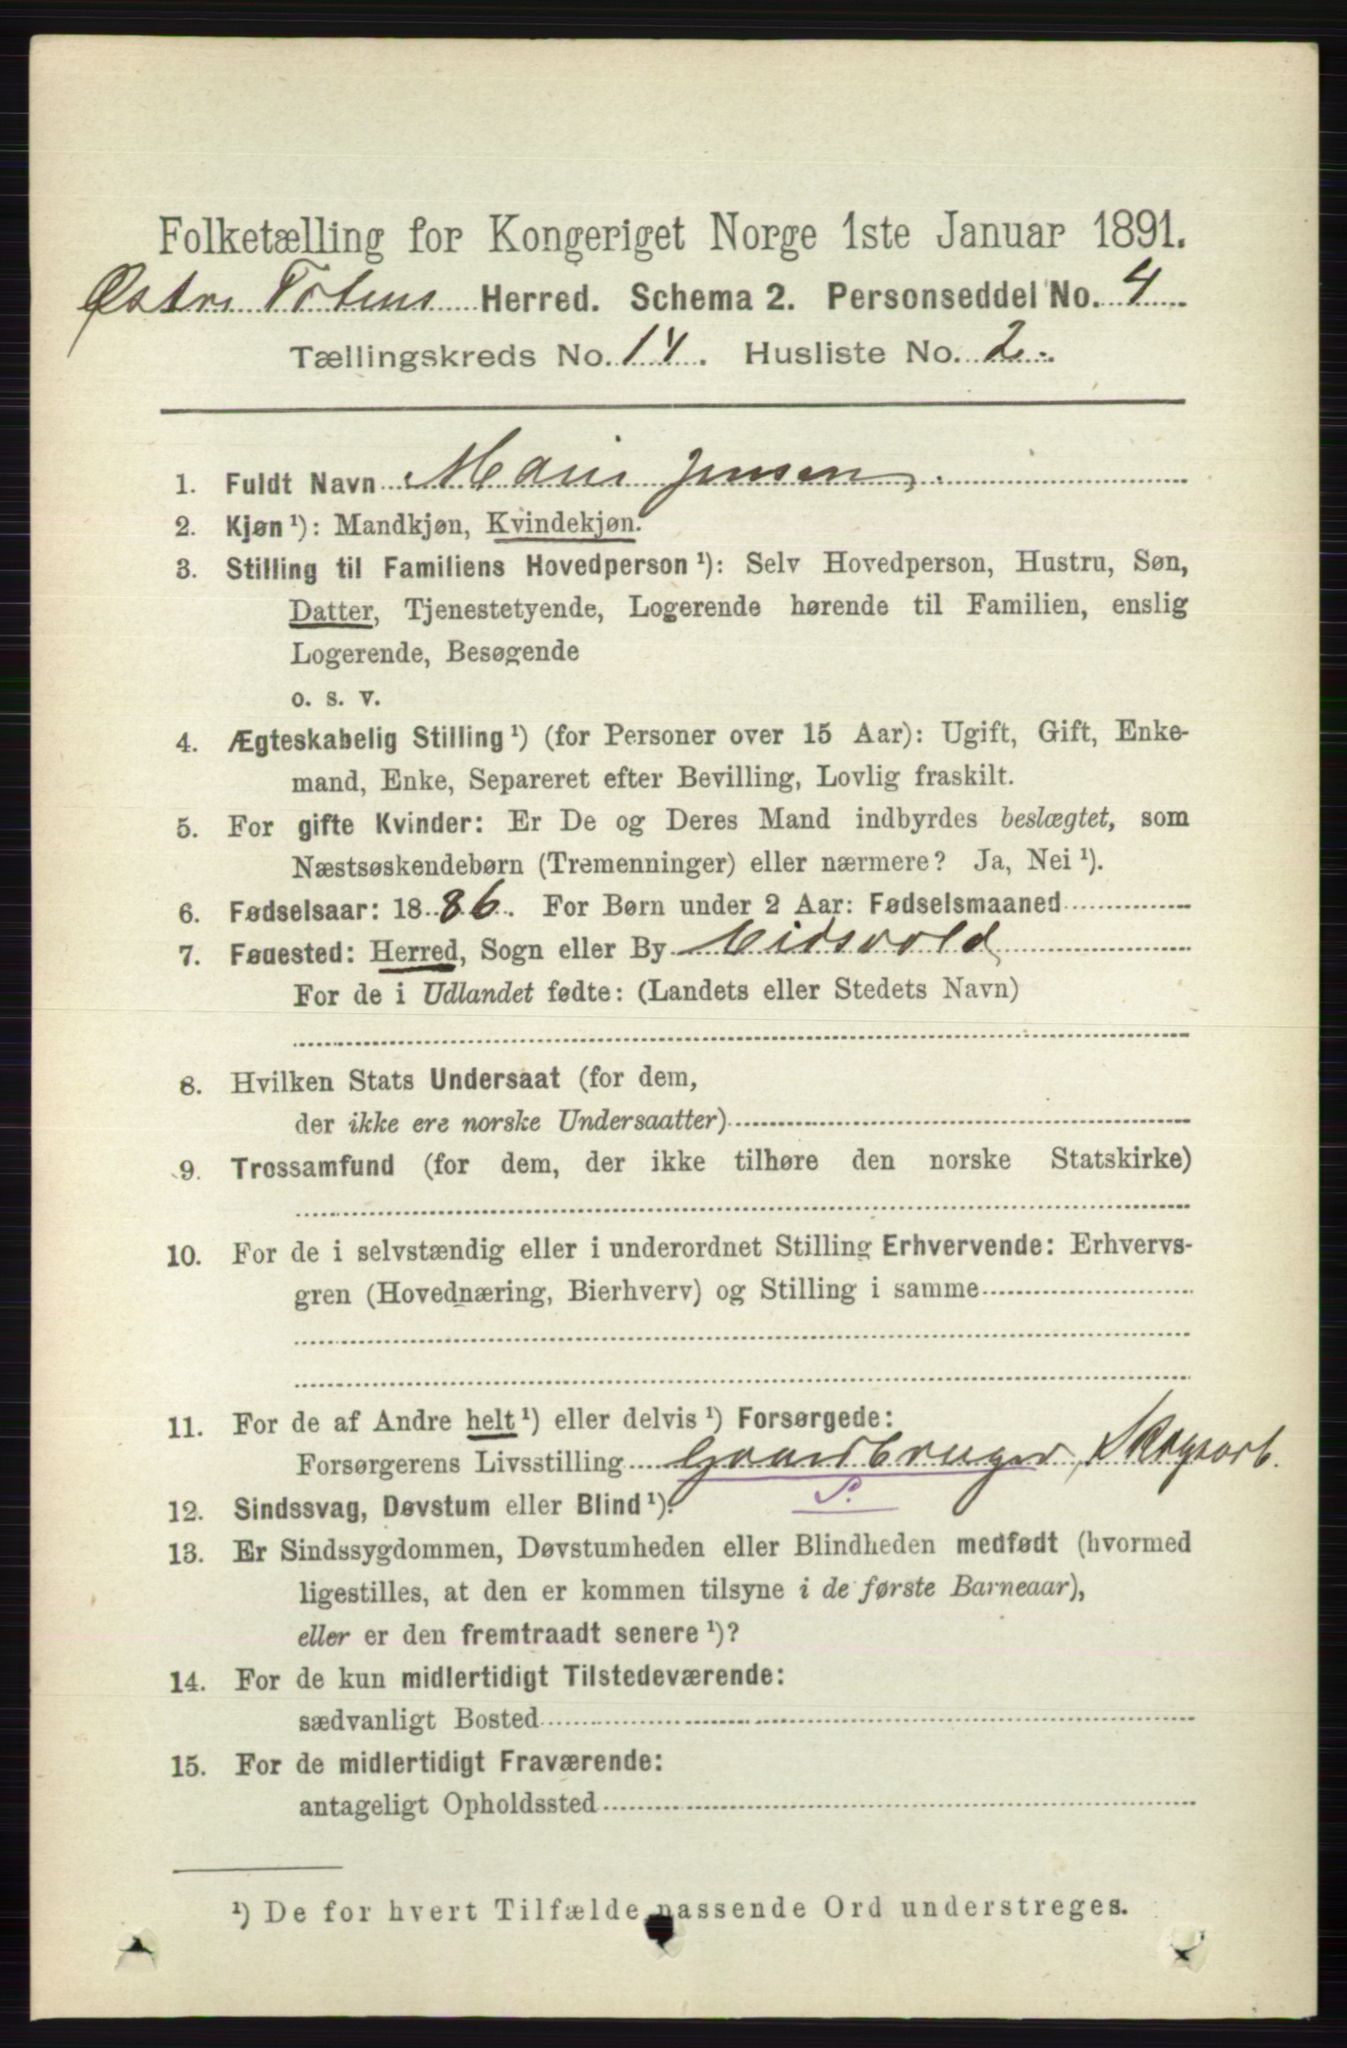 Folketælling for Kongeriget Norge 1ste Januar 1891.
Østre Totens Herred. Schema 2. Personseddel No. 4
Tællingskreds No. 14. Husliste No. 2.
1. Fuldt Navn Marie Jensen
2. Kjøn ¹): Mandkjøn, Kvindekjøn.
3. Stilling til Familiens Hovedperson ¹): Selv Hovedperson, Hustru, Søn,
Datter, Tjenestetyende, Logerende hørende til Familien, enslig
Logerende, Besøgende
o. s. v.
4. Ægteskabelig Stilling ¹) (for Personer over 15 Aar): Ugift, Gift, Enke-
mand, Enke, Separeret efter Bevilling, Lovlig fraskilt.
5. For gifte Kvinder: Er De og Deres Mand indbyrdes beslægtet, som
Næstsøskendebørn (Tremenninger) eller nærmere? Ja, Nei ¹).
6. Fødselsaar: 1886. For Børn under 2 Aar: Fødselsmaaned
7. Føuested: Herred, Sogn eller By Eidsvold
For de i Udlandet fødte: (Landets eller Stedets Navn)
8. Hvilken Stats Undersaat (for dem,
der ikke ere norske Undersaatter)
9. Trossamfund (for dem, der ikke tilhøre den norske Statskirke)
10. For de i selvstændig eller i underordnet Stilling Erhvervende: Erhvervs-
gren (Hovednæring, Bierhverv) og Stilling i samme
11. For de af Andre helt ¹) eller delvis ¹) Forsørgede:
Forsørgerens Livsstilling Gaardbruger, Skogsarb.
S.
12. Sindssvag, Døvstum eller Blind ¹).
13. Er Sindssygdommen, Døvstumheden eller Blindheden medfødt (hvormed
ligestilles, at den er kommen tilsyne i de første Barneaar),
eller er den fremtraadt senere ¹)?
14. For de kun midlertidigt Tilstedeværende:
sædvanligt Bosted
15. For de midlertidigt Fraværende:
antageligt Opholdssted
¹) De for hvert Tilfælde passende Ord understreges.